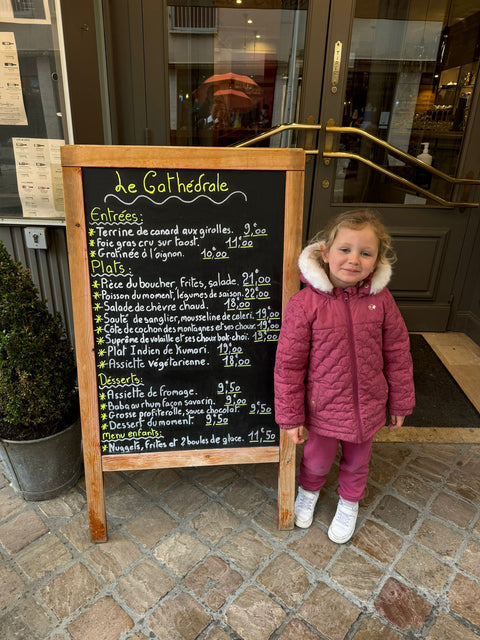 Le Cathédrale
Entrées:
* Terrine de canard aux girolles. 9,00
* Foie gras cru sur toast. 11,00
* Gratinée à l'oignon. 10,00
Plats:
* Pièce du boucher, Frites, salade. 21,00
* Poisson du moment, légumes de saison. 22,00
* Salade de chèvre chaud. 18,00
* Sauté de sanglier, mousseline de celeri. 19,00
* Côte de cochon des montagnes et ses choux. 19,00
* Suprême de volaille et ses choux bok-choï. 19,00
* Plat Indien de Kumari. 19,00
* Assiette végétarienne. 18,00
Desserts:
* Assiette de fromage. 9,50
* Baba au rhum façon savarin. 9,00
* Grosse profiterolle, sauce chocolat. 9,50
* Dessert du moment. 9,50
menu enfants:
* Nuggets, frites et 2 boules de glace. 11,50